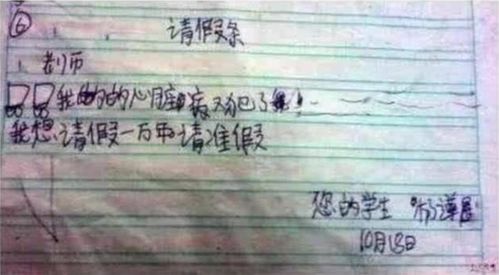 ⑥ 请假条
老师
我的心脏病又犯了
我想请假一万年请准假
您的学生
10月18日